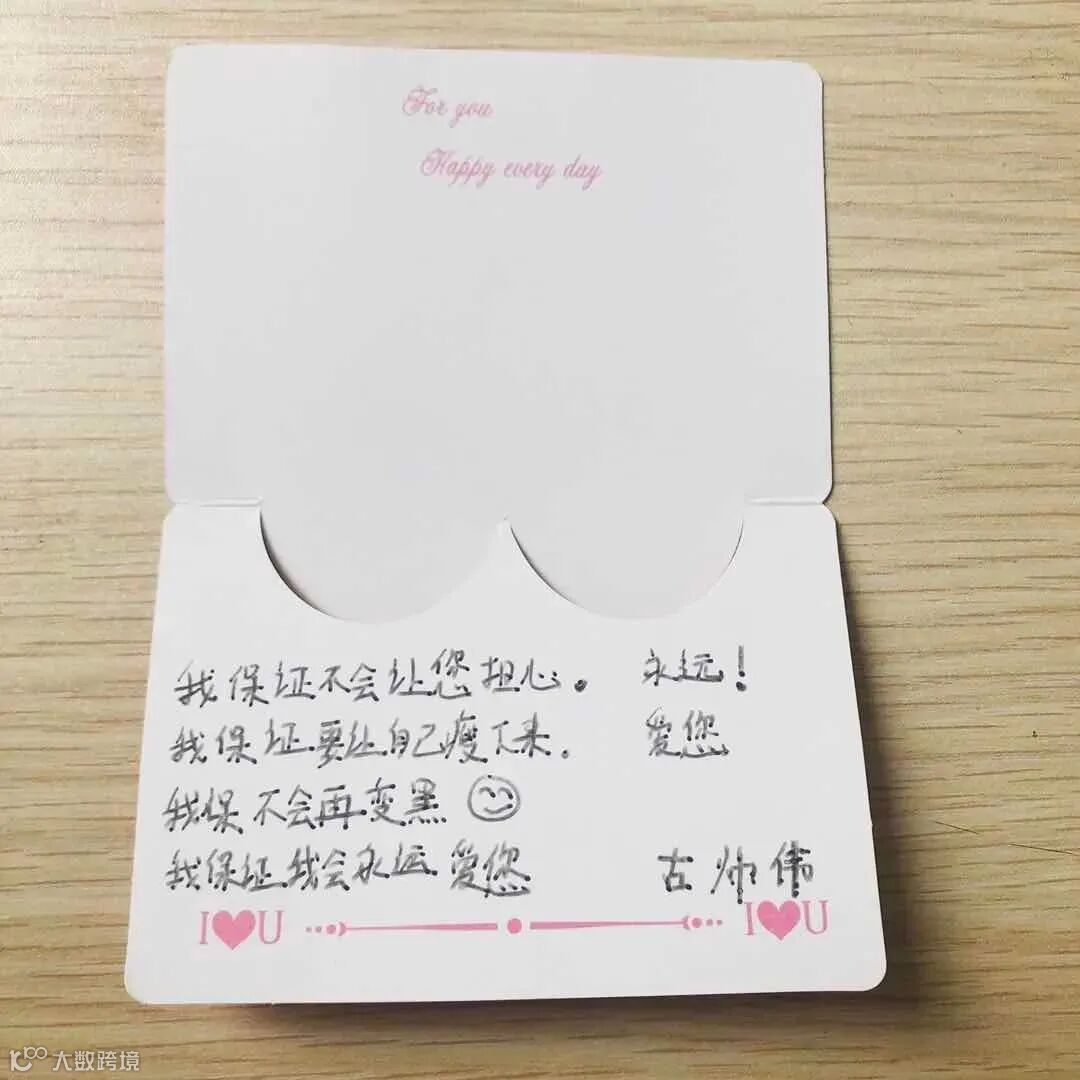 For you
Happy every day
我保证不会让您担心。 永远!
我保证要让自己瘦下来。 爱您
我保不会再变黑
我保证我会永远爱您 古帅伟
I♥U I♥U
大数跨境